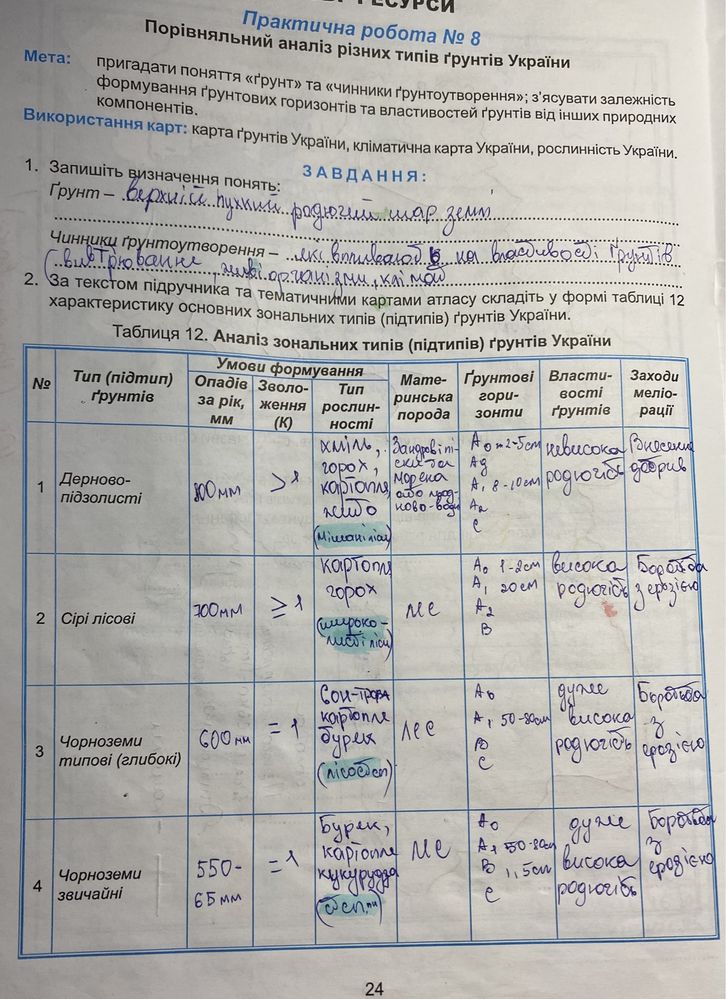 РЕСУРСИ
Практична робота № 8
Порівняльний аналіз різних типів ґрунтів України
Мета: пригадати поняття «ґрунт» та «чинники ґрунтоутворення»; з'ясувати залежність
формування ґрунтових горизонтів та властивостей ґрунтів від інших природних
компонентів.
Використання карт: карта ґрунтів України, кліматична карта України, рослинність України.
ЗАВДАННЯ:
1. Запишіть визначення понять:
Ґрунт – верхній пухкий родючий шар землі
Чинники ґрунтоутворення – які на властивості ґрунтів
(вивітрювання, живі організми, клімат
2. За текстом підручника та тематичними картами атласу складіть у формі таблиці 12
характеристику основних зональних типів (підтипів) ґрунтів України.
Таблиця 12. Аналіз зональних типів (підтипів) ґрунтів України
№
Тип (підтип)
ґрунтів
Умови формування
Опадів
за рік,
мм
Зволо-
ження
(К)
Тип
рослин-
ності
Мате-
ринська
порода
Ґрунтові
гори-
зонти
Власти-
вості
ґрунтів
Заходи
меліо-
рації
1
Дерново-
підзолисті
800мм
>1
хміль,
горох,
картопля
жито
(мішані ліси)
Зандрові пі-
ски та
морена
або
A₀ 2-5см
Ag
A₁ 8-10см
A₂
C
невисока
родючість
Внесення
добрив
2
Сірі лісові
700мм
≥1
картопля
горох
(широко-
листі ліси)
лес
A₀ 1-2см
A₁ 20см
A₂
B
висока
родючість
Боротьба
з ерозією
3
Чорноземи
типові (глибокі)
600мм
=1
Сон-трава
картопля
буряк
(лісостеп)
лес
A₀
A₁ 50-80см
B
C
дуже
висока
родючість
Боротьба
з
ерозією
4
Чорноземи
звичайні
550-
65мм
=1
Буряк,
картопля
кукурудза
лес
A₀
A₁ 50-80см
B 1,5см
C
дуже
висока
родючість
Боротьба
з
ерозією
24